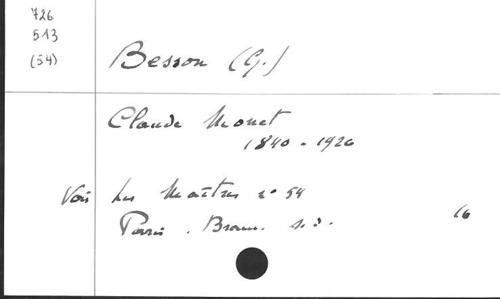 726
513
(54)
Besson (G.)
Claude Monet
1840-1926
Voir Les Maîtres n° 54
Paris. Braun. s.d.
16